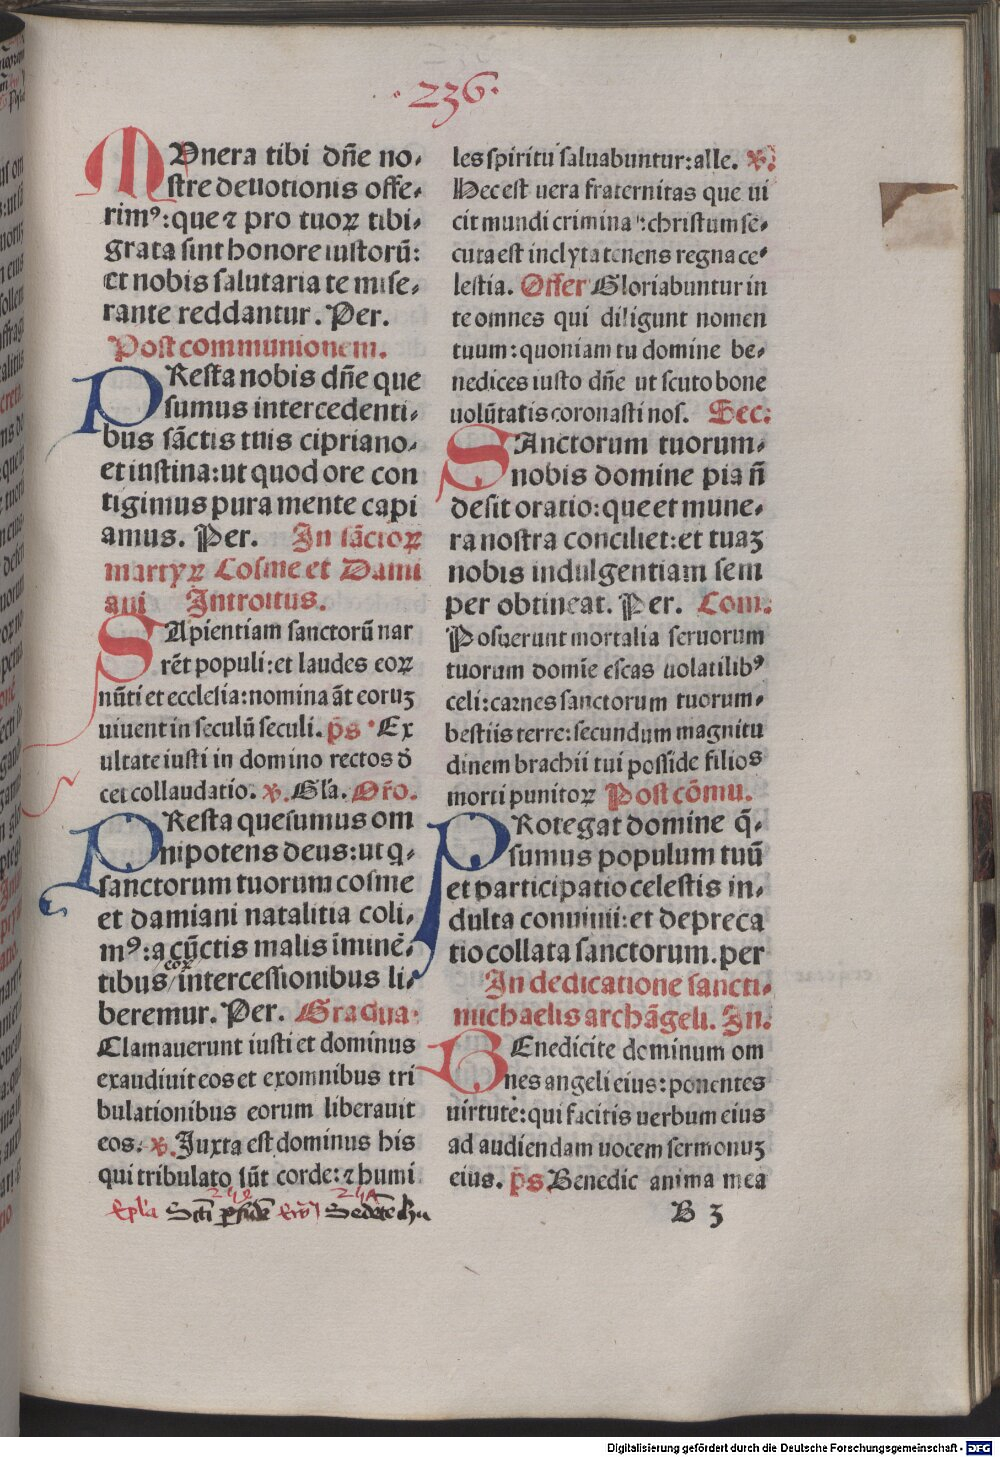 ·236·
MVnera tibi dñe no-
stre deuotionis offe-
rimꝰ:que ⁊ pro tuoꝝ tibi-
grata sint honore iustorũ:
et nobis salutaria te mise-
rante reddantur. Per.
Post communionem.
PResta nobis dñe que
sumus intercedenti-
bus sãctis tuis cipriano-
et iustina:ut quod ore con
tigimus pura mente capi
amus. Per. In sãctoꝝ
martyꝝ Cosme et Dami
ani Introitus.
SApientiam sanctorũ nar
rēt populi:et laudes eoꝝ
nũti et ecclesia:nomina ãt eoruꝫ
uiuent in seculũ seculi. p̃s Ex
ultate iusti in domino rectos d̄
cet collaudatio. ℣. Gl̃a. Or̃o.
PResta quesumus om
nipotens deus:ut q̃-
sanctorum tuorum cosme
et damiani natalitia coli-
mꝰ:a cũctis malis iminē-
tibus/eoꝝ/intercessionibus li-
beremur. Per. Gradua-
Clamauerunt iusti et dominus
exaudiuit eos et ex omnibus tri
bulationibus eorum liberauit
eos. ℣. Iuxta est dominus his
qui tribulato sũt corde:⁊ humi
242 241
Epl'a Scti p fidē Eṽ Sedēte ihu
les spiritu saluabuntur:alle. ℣.
Hec est uera fraternitas que ui
cit mundi crimina:christum se-
cuta est inclyta tenens regna ce-
lestia. Offer Gloriabuntur in
te omnes qui diligunt nomen
tuum:quoniam tu domine be-
nedices iusto dñe ut scuto bone
uolũtatis coronasti nos. Sec:
SAnctorum tuorum-
nobis domine pia ñ
desit oratio:que et mune-
ra nostra conciliet:et tuaꝫ
nobis indulgentiam sem
per obtineat. Per. Com:
Posuerunt mortalia seruorum
tuorum domīe escas uolatilibꝰ
celi:carnes sanctorum tuorum-
bestiis terre:secundum magnitu
dinem brachii tui posside filios
morti punitoꝝ Post cõmu.
PRotegat domine q̃-
sumus populum tuũ
et participatio celestis in-
dulta conuiuii:et depreca
tio collata sanctorum. per
In dedicatione sancti-
michaelis archãgeli. In.
BEnedicite dominum om
nes angeli eius:ponentes
uirtutē:qui facitis uerbum eius
ad audiendam uocem sermonuꝫ
eius. p̃s Benedic anima mea
B 3
Digitalisierung gefördert durch die Deutsche Forschungsgemeinschaft - DFG